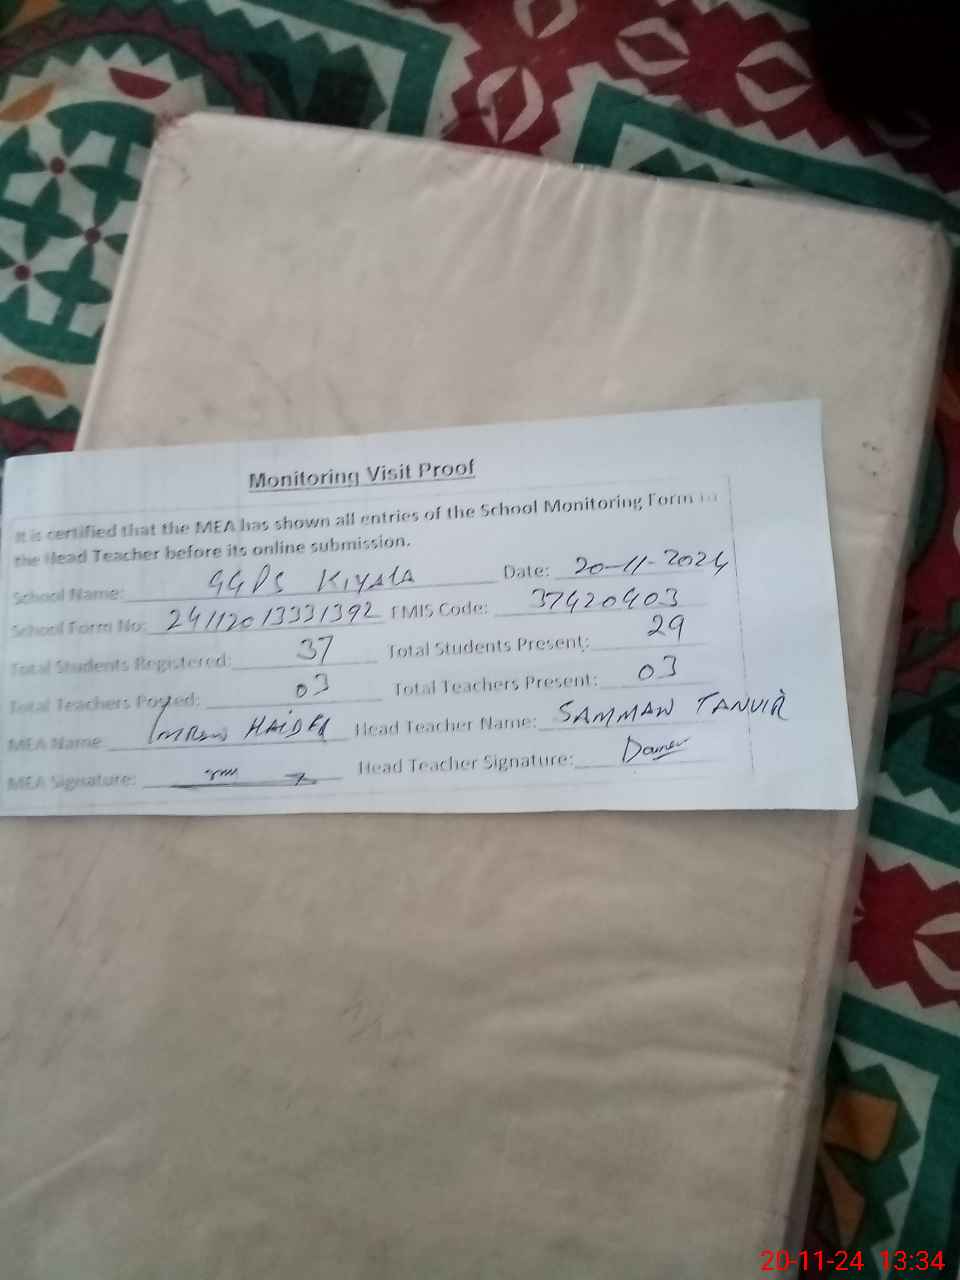 Monitoring Visit Proof
It is certified that the MEA has shown all entries of the School Monitoring Form to
the Head Teacher before its online submission.
School Name: GGPS KIYALA Date: 20-11-2024
School Form No: 24112013331392 EMIS Code: 37420403
Total Students Registered: 37 Total Students Present: 29
Total Teachers Posted: 03 Total Teachers Present: 03
MEA Name IMRAN HAIDER Head Teacher Name: SAMMAN TANVIR
MEA Signature: Head Teacher Signature:
20-11-24 13:34